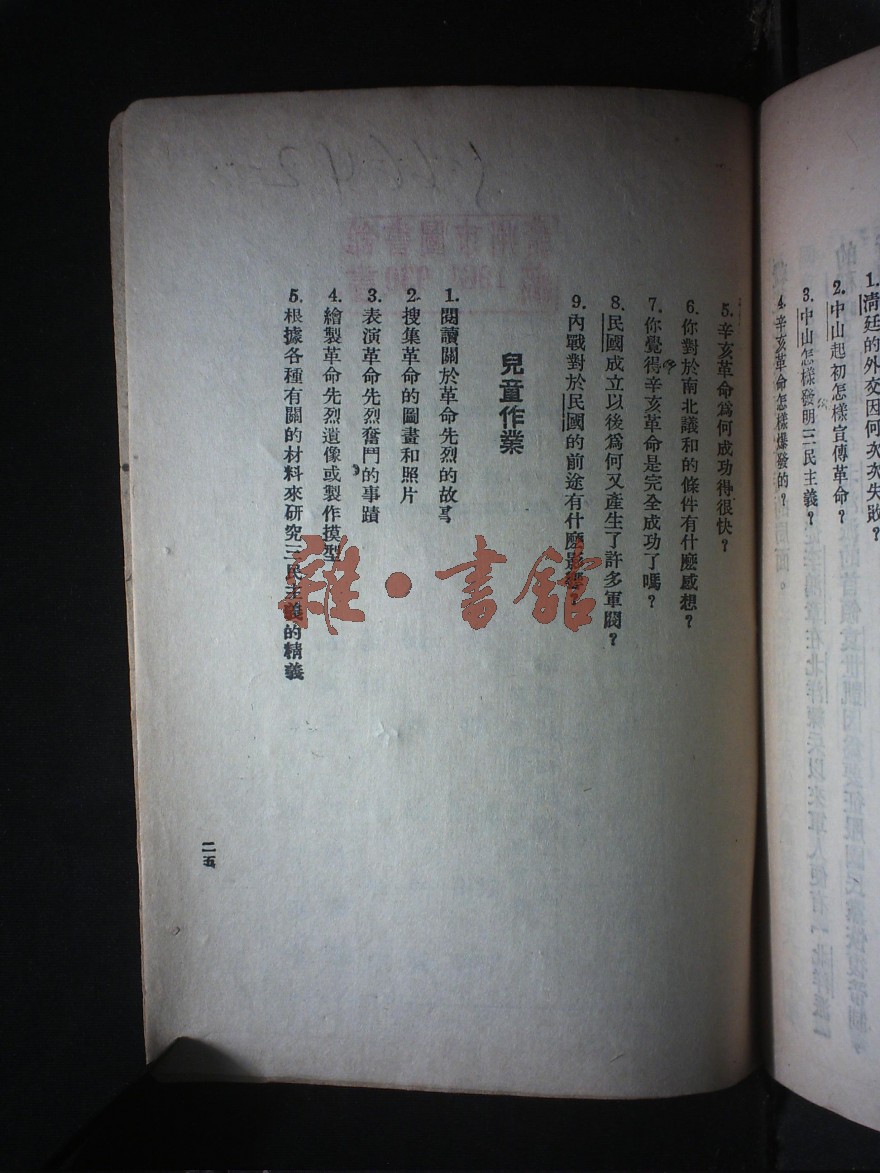 1.清廷的外交因何次次失敗?
2.中山起初怎樣宣傳革命?
3.中山怎樣發明三民主義?
4.辛亥革命怎樣爆發的?
5.辛亥革命爲何成功得很快?
6.你對於南北議和的條件有什麽感想?
7.你覺得辛亥革命是完全成功了嗎?
8.民國成立以後爲何又產生了許多軍閥?
9.內戰對於民國的前途有什麽影響?
兒童作業
1.閱讀關於革命先烈的故事
2.搜集革命的圖畫和照片
3.表演革命先烈奮鬥的事蹟
4.繪製革命先烈遺像或製作摸型
5.根據各種有關的材料來研究三民主義的精義
二五
雜·書館